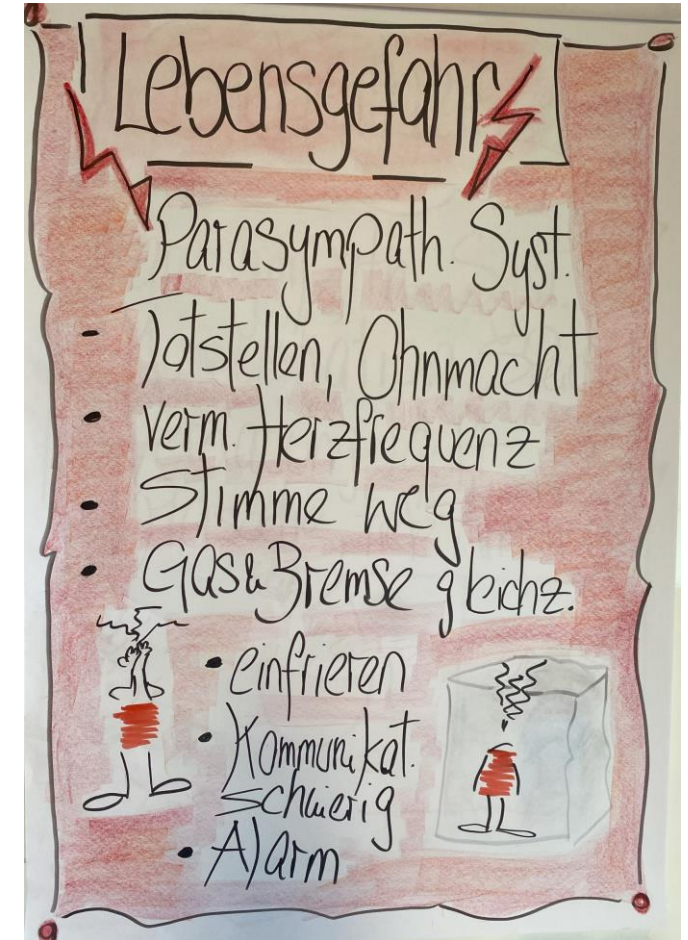 Lebensgefahr
Parasympath. Syst.
- Totstellen, Ohnmacht
- verm. Herzfrequenz
- Stimme weg
- Gas & Bremse gleichz.
- einfrieren
- Kommunikat.
schwierig
- Alarm